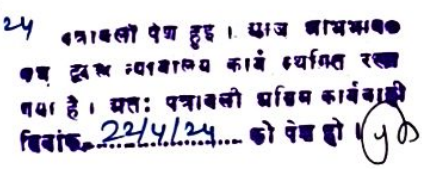 24 पत्रावली पेश हुई । आज
द्वारा न्यायालय कार्य स्थगित रखा
गया है । अतः पत्रावली अग्रिम कार्यवाही
दिनांक 22/4/24 को पेश हो ।